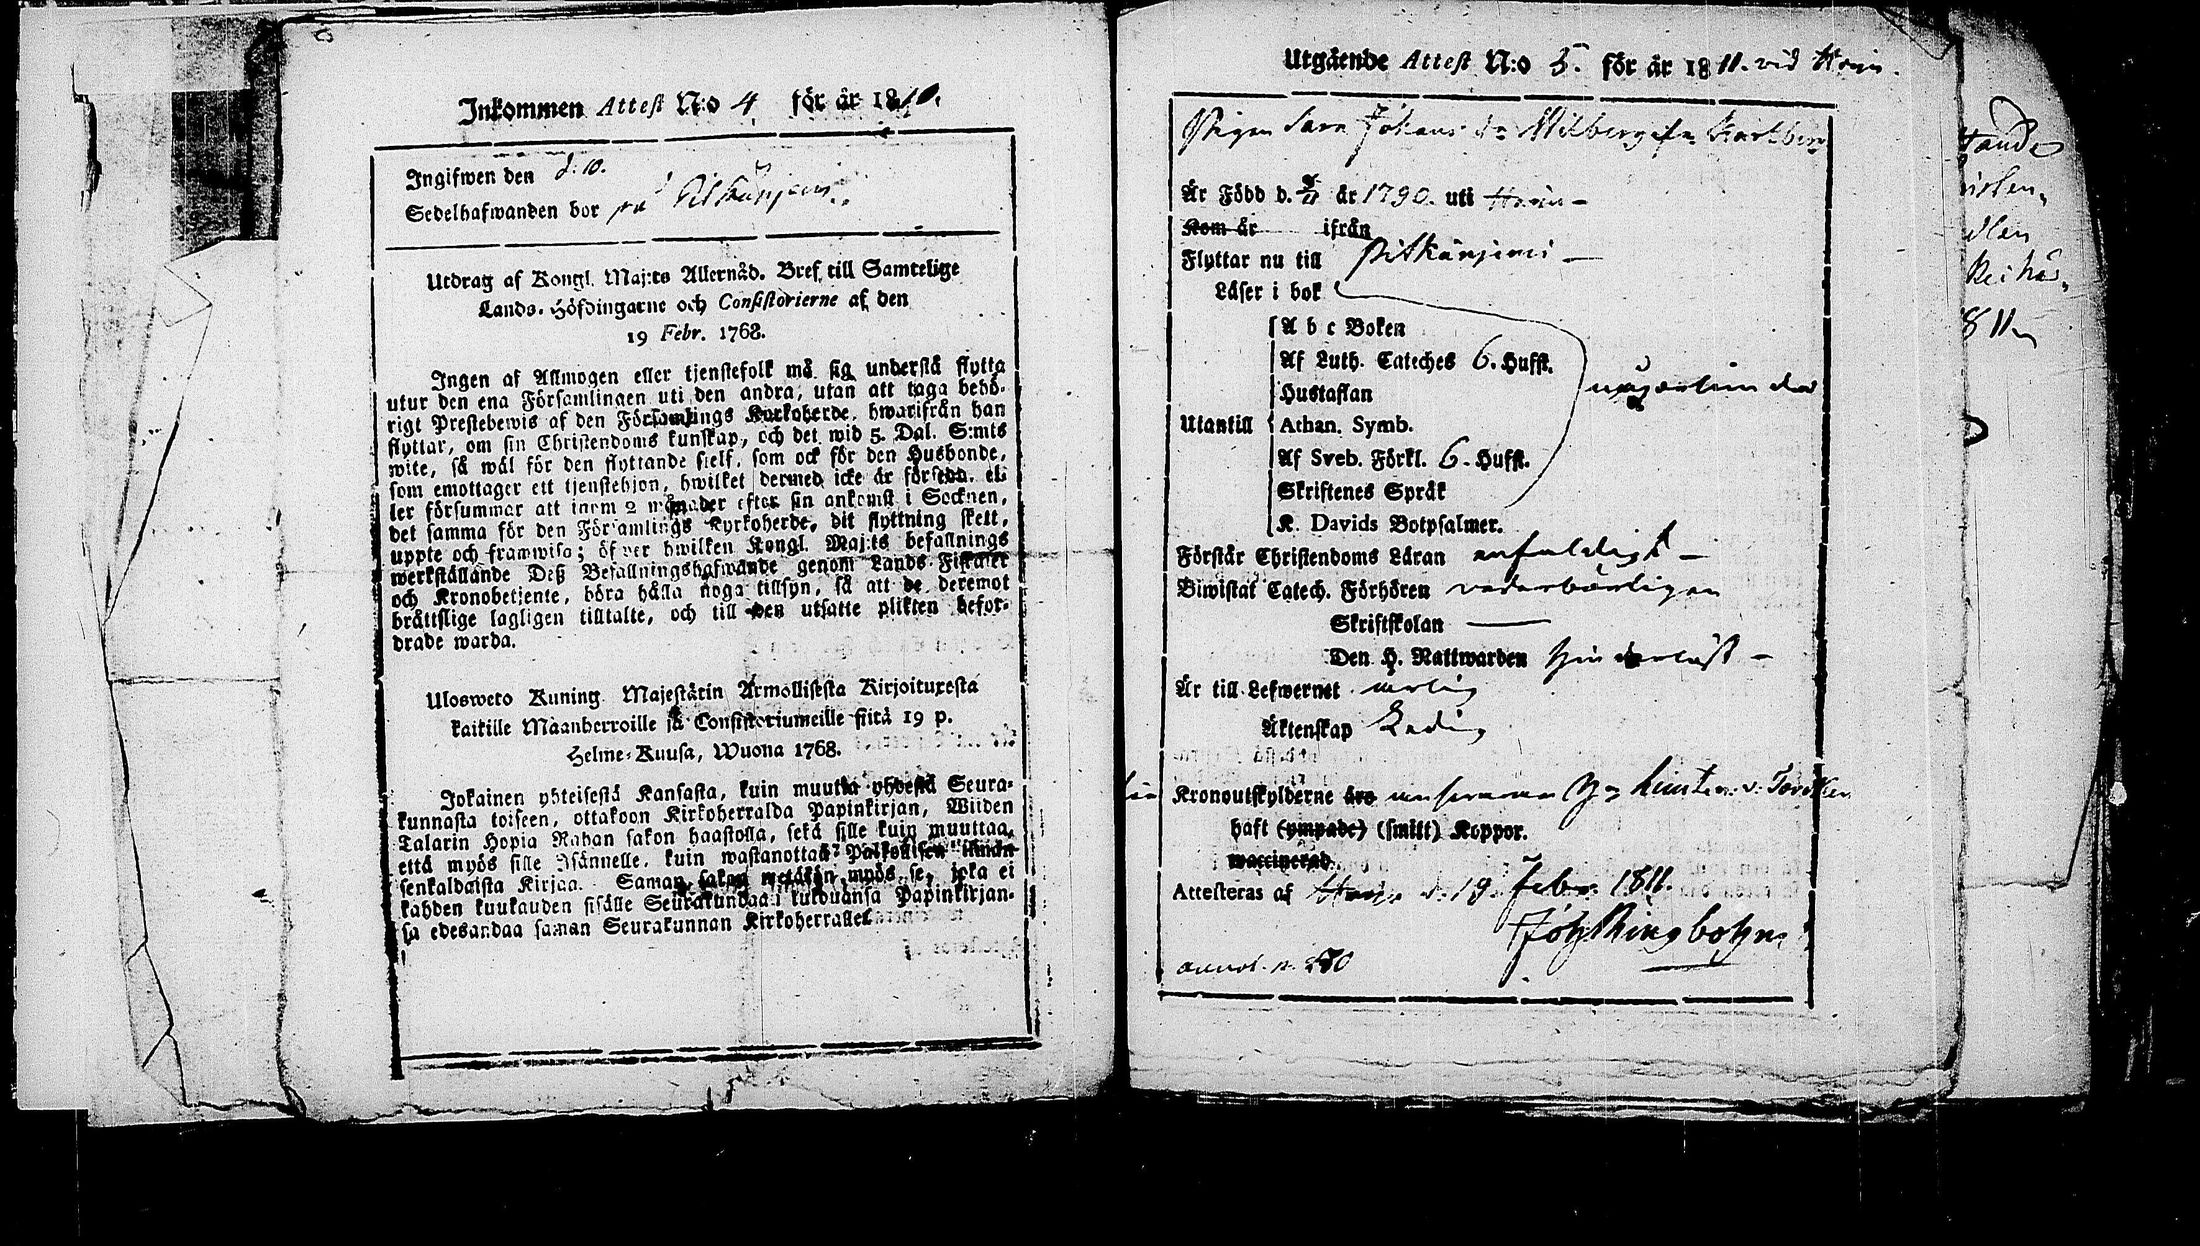 Inkommen Attest N:o 4 för år 1810.
Ingifwen den d. 10.
Sedelhafwanden bor på Pitkänjemi.
Utdrag af Kongl. Maj:ts Allernåd. Bref till Samtelige
Lands-Höfdingarne och Consistorierne af den
19 Febr. 1768.
Ingen af Allmogen eller tjenstefolk må sig understå flytta
utur den ena Församlingen uti den andra, utan att taga behö-
rigt Prestebewis af den Församlings Kyrkoherde, hwarifrån han
flyttar, om sin Christendoms kunskap, och det wid 5. Dal. S:mts
wite, så wäl för den flyttande sielf, som ock för den Husbonde,
som emottager ett tjenstehjon, hwilket dermed icke är försedd, el-
ler försummar att inom 2 månader efter sin ankomst i Socknen,
det samma för den Församlings Kyrkoherde, dit flyttning skett,
uppte och framwisa; öfwer hwilken Kongl. Maj:ts befallnings
werkställande Deß Befallningshafwande genom Lands-Fiskaler
och Kronobetjente, böra hålla noga tillsyn, så att de deremot
bråttslige lagligen tilltalte, och till den utsatte plikten befor-
drade warda.
Ulosweto Kuning. Majestärin Armollisesta Kirjoituxesta
kaikille Maanherroille ja Consistoriumeille siitä 19 p.
Helme-Kuusa, Wuona 1768.
Jokainen yhteisestä Kansasta, kuin muutta yhdestä Seura-
kunnasta toiseen, ottakoon Kirkoherralda Papinkirjan, Wiiden
Talarin Hopia Rahan sakon haastolla, sekä sille kuin muuttaa,
että myös sille Isännelle, kuin wastanottaa Palkollisen ilman
senkaldaista Kirjaa. Saman sakon wetäkön myös se, joka ei
kahden kuukauden sisälle Seurakundaan tulduansa Papinkirjan-
sa edesandaa saman Seurakunnan Kirkoherralle.
Utgående Attest N:o 5. för år 1811. vid
Pigan Sara Johans d:r
Är Född d. år 1790. uti
Kom år ifrån
Flyttar nu till Pitkänjemi
Läser i bok
A b c Boken
Af Luth. Cateches 6. Hufst.
Hustaflan
Utantill Athan. Symb.
Af Sveb. Förkl. 6. Hufst.
Skriftenes Språk
K. Davids Botpsalmer.
Förstår Christendoms Läran enfaldigt
Biwistat Catech. Förhören vederbörligen
Skriftskolan
Den H. Nattwarden hinderlöst
Är till Lefwernet ärlig
Äktenskap Ledig
Kronoutskylderne äro
haft (ympade) (smitt) Koppor.
waccinerad
Attesteras af d. 19 Febr. 1811.
Joh. Ringbohm
annot.